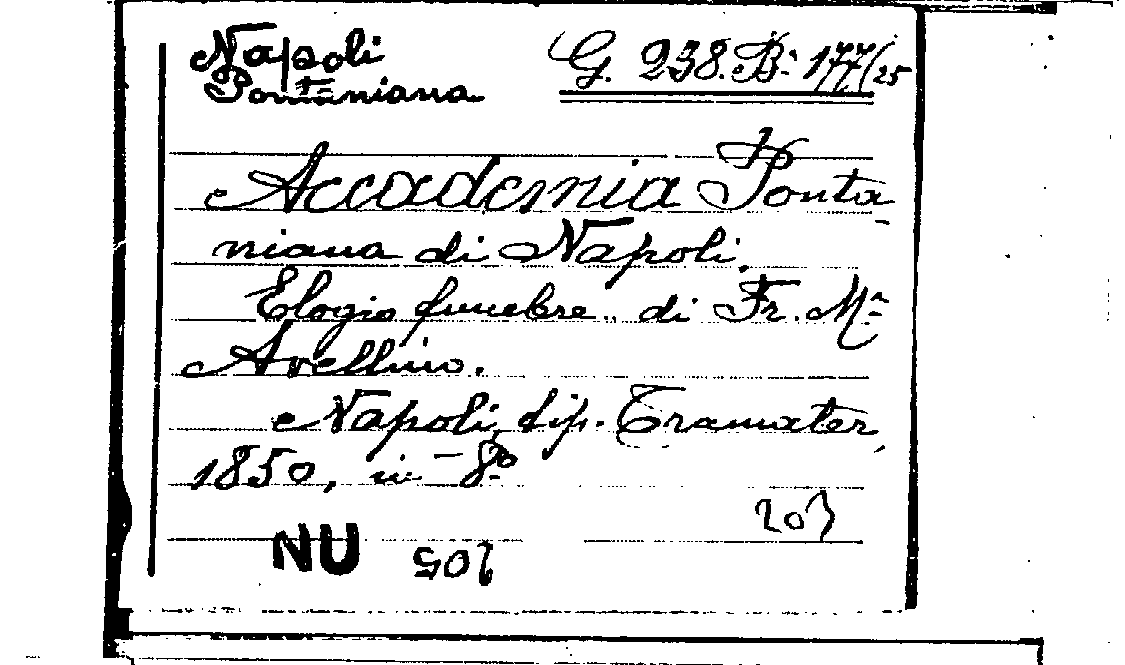 Napoli
Pontaniana
G. 238. B. 177/25
Accademia Ponta
niana di Napoli.
Elogio funebre di Fr. Mª
Avellino.
Napoli, tip. Tramater,
1850, in-8º
203
NU